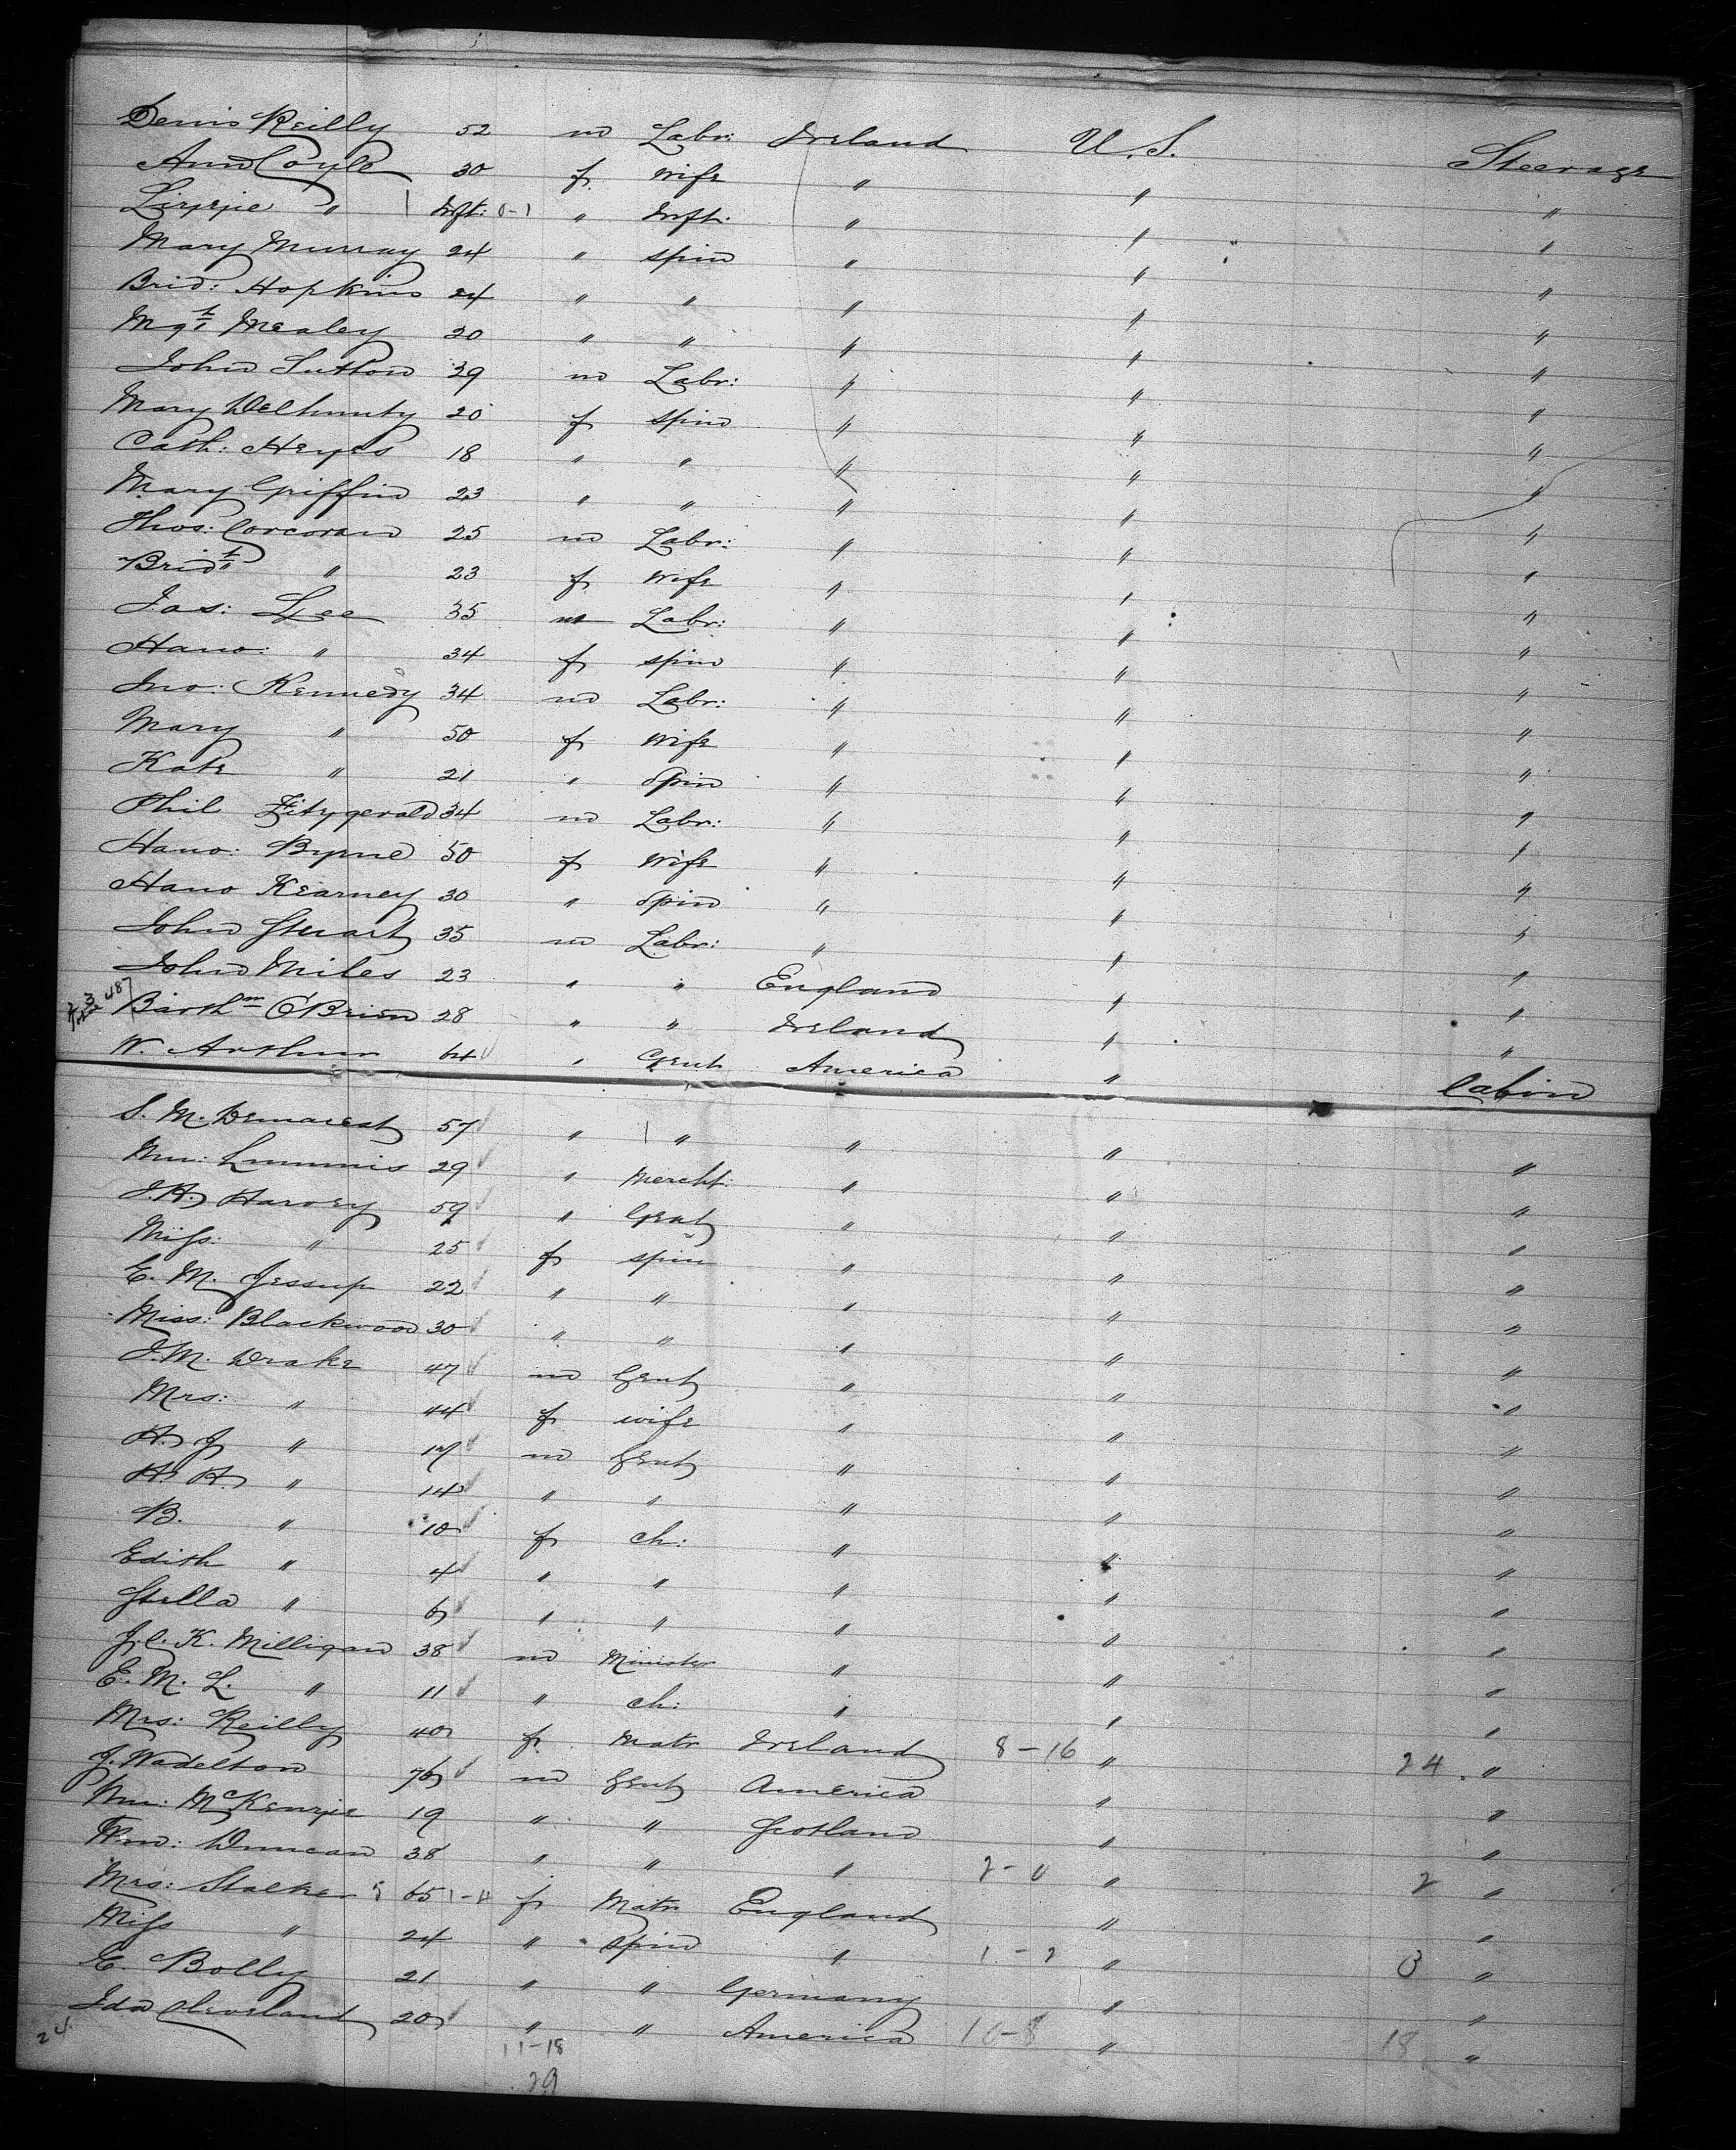 Denis Reilly 52 m Labr: Ireland U.S. Steerage
Ann Coyle 30 f wife " " "
Lizzie " Inft: 0-1 " Inft: " " "
Mary Murray 24 " spin " " "
Brid: Hopkins 24 " " " " "
Mgt Mealey 20 " " " " "
John Sutton 39 m Labr: " " "
Mary Delhunty 20 f spin " " "
Cath: Heyes 18 " " " " "
Mary Griffin 23 " " " " "
Thos: Corcoran 25 m Labr: " " "
Bridt " 23 f wife " " "
Jas: Lee 35 m Labr: " " "
Hano: " 34 f spin " " "
Jno: Kennedy 34 m Labr: " " "
Mary " 50 f wife " " "
Kate " 21 " Spin " " "
Phil Fitzgerald 34 m Labr: " " "
Hano: Byrne 50 f wife " " "
Hano Kearney 30 " Spin " " "
John Stuart 35 m Labr: " " "
John Miles 23 " " England " "
487
Barthm O'Brien 28 " " Ireland " "
W. Arthur 64 " Gent America " Cabin
S. M. Demarest 57 " " " " "
Wm: Lummis 29 " Mercht: " " "
J. H. Harvey 59 " Gent " " "
Miss: " 25 f spin " " "
E. M. Jessup 22 " " " " "
Miss: Blackwood 30 " " " " "
J. M. Drake 47 m Gent " " "
Mrs: " 44 f wife " " "
H. J " 17 m Gent " " "
H. H. " 14 " " " " "
B. " 10 f ch: " " "
Edith " 4 " " " " "
Stella " 6 " " " " "
J. C. K. Milligan 38 m Minister " " "
E. M. L. " 11 " ch: " " "
Mrs: Reilly 40 f Matr Ireland 8-16 " 24 "
J. Wadelton 76 m Gent America " "
Wm: McKenzie 19 " " Scotland " "
Wm: Duncan 38 " " " 2-0 " 2 "
Mrs: Stalker 5 65 1-4 f Matr England " "
Miss " 24 " spin " 1-2 " 3 "
E. Bolly 21 " " Germany " "
Ida Cleveland 20 " " America 10-8 " 18 "
24 11-18
29